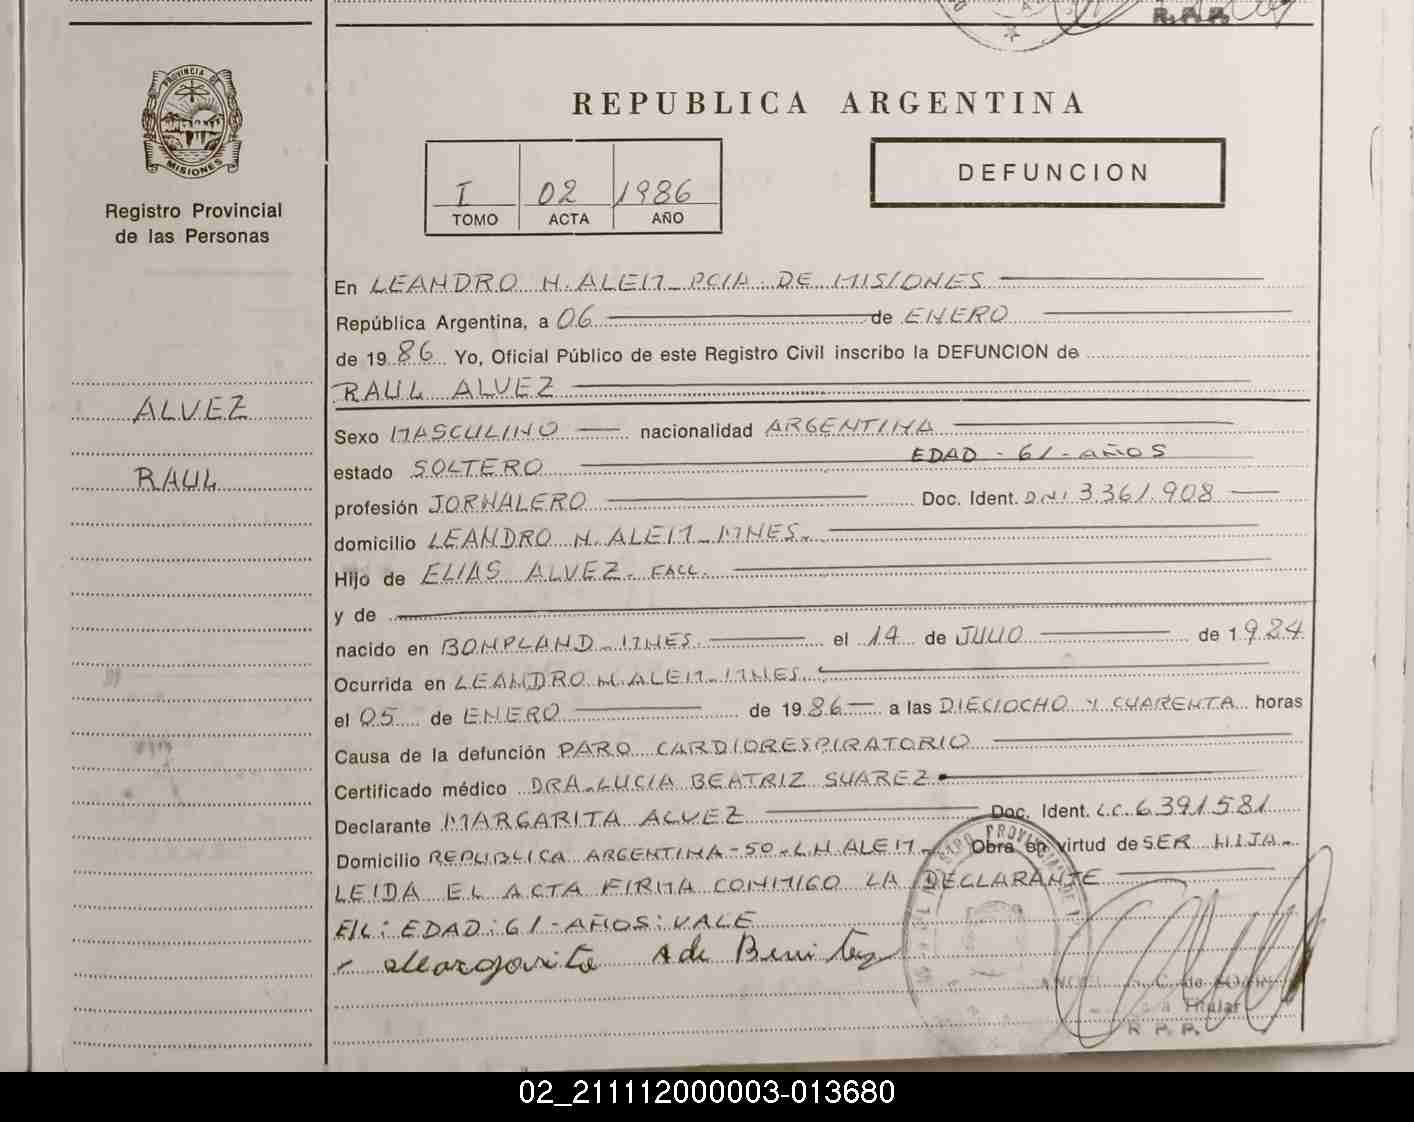 R. P. P.
PROVINCIA DE
MISIONES
Registro Provincial
de las Personas
ALVEZ
RAUL
REPUBLICA ARGENTINA
I 02 1986
TOMO ACTA AÑO
DEFUNCION
En LEANDRO N. ALEM - PCIA. DE MISIONES
República Argentina, a 06 de ENERO
de 19 86 Yo, Oficial Público de este Registro Civil inscribo la DEFUNCION de
RAUL ALVEZ
Sexo MASCULINO nacionalidad ARGENTINA
EDAD - 61 - AÑOS
estado SOLTERO
profesión JORNALERO Doc. Ident. DNI 3361.908
domicilio LEANDRO N. ALEM - MNES.
Hijo de ELIAS ALVEZ - FALL.
y de
nacido en BONPLAND - MNES. el 14 de JULIO de 1924
Ocurrida en LEANDRO N. ALEM - MNES.
el 05 de ENERO de 1986 a las DIECIOCHO Y CUARENTA horas
Causa de la defunción PARO CARDIORESPIRATORIO
Certificado médico DRA. LUCIA BEATRIZ SUAREZ
Declarante MARGARITA ALVEZ Doc. Ident. L.C. 6391581
Domicilio REPUBLICA ARGENTINA - 50 - L.N ALEM - Obra en virtud de SER HIJA -
LEIDA EL ACTA FIRMA CONMIGO LA DECLARANTE
E/L: EDAD: 61 - AÑOS: VALE
Margarita A de Benitez
C. de
Titular
R. P. P.
02_211112000003-013680